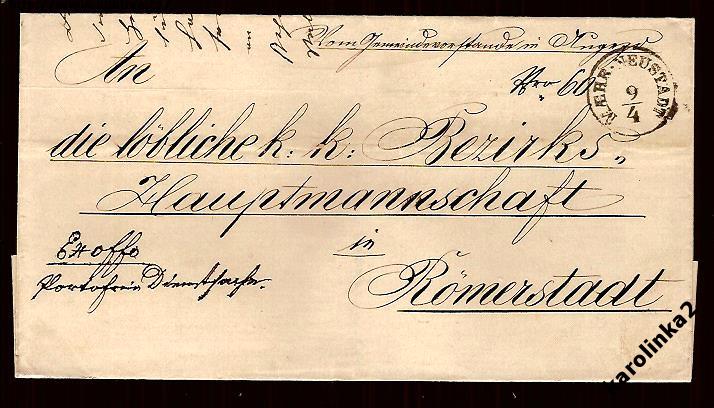 Vom Gemeindevorstande in
An
Nro 60
MÆHR. NEUSTADT
9/4
die löbliche k: k: Bezirks„
Hauptmannschaft
in
Römerstadt
Ex offo
Portofreie Dienstsache.
karolinka2